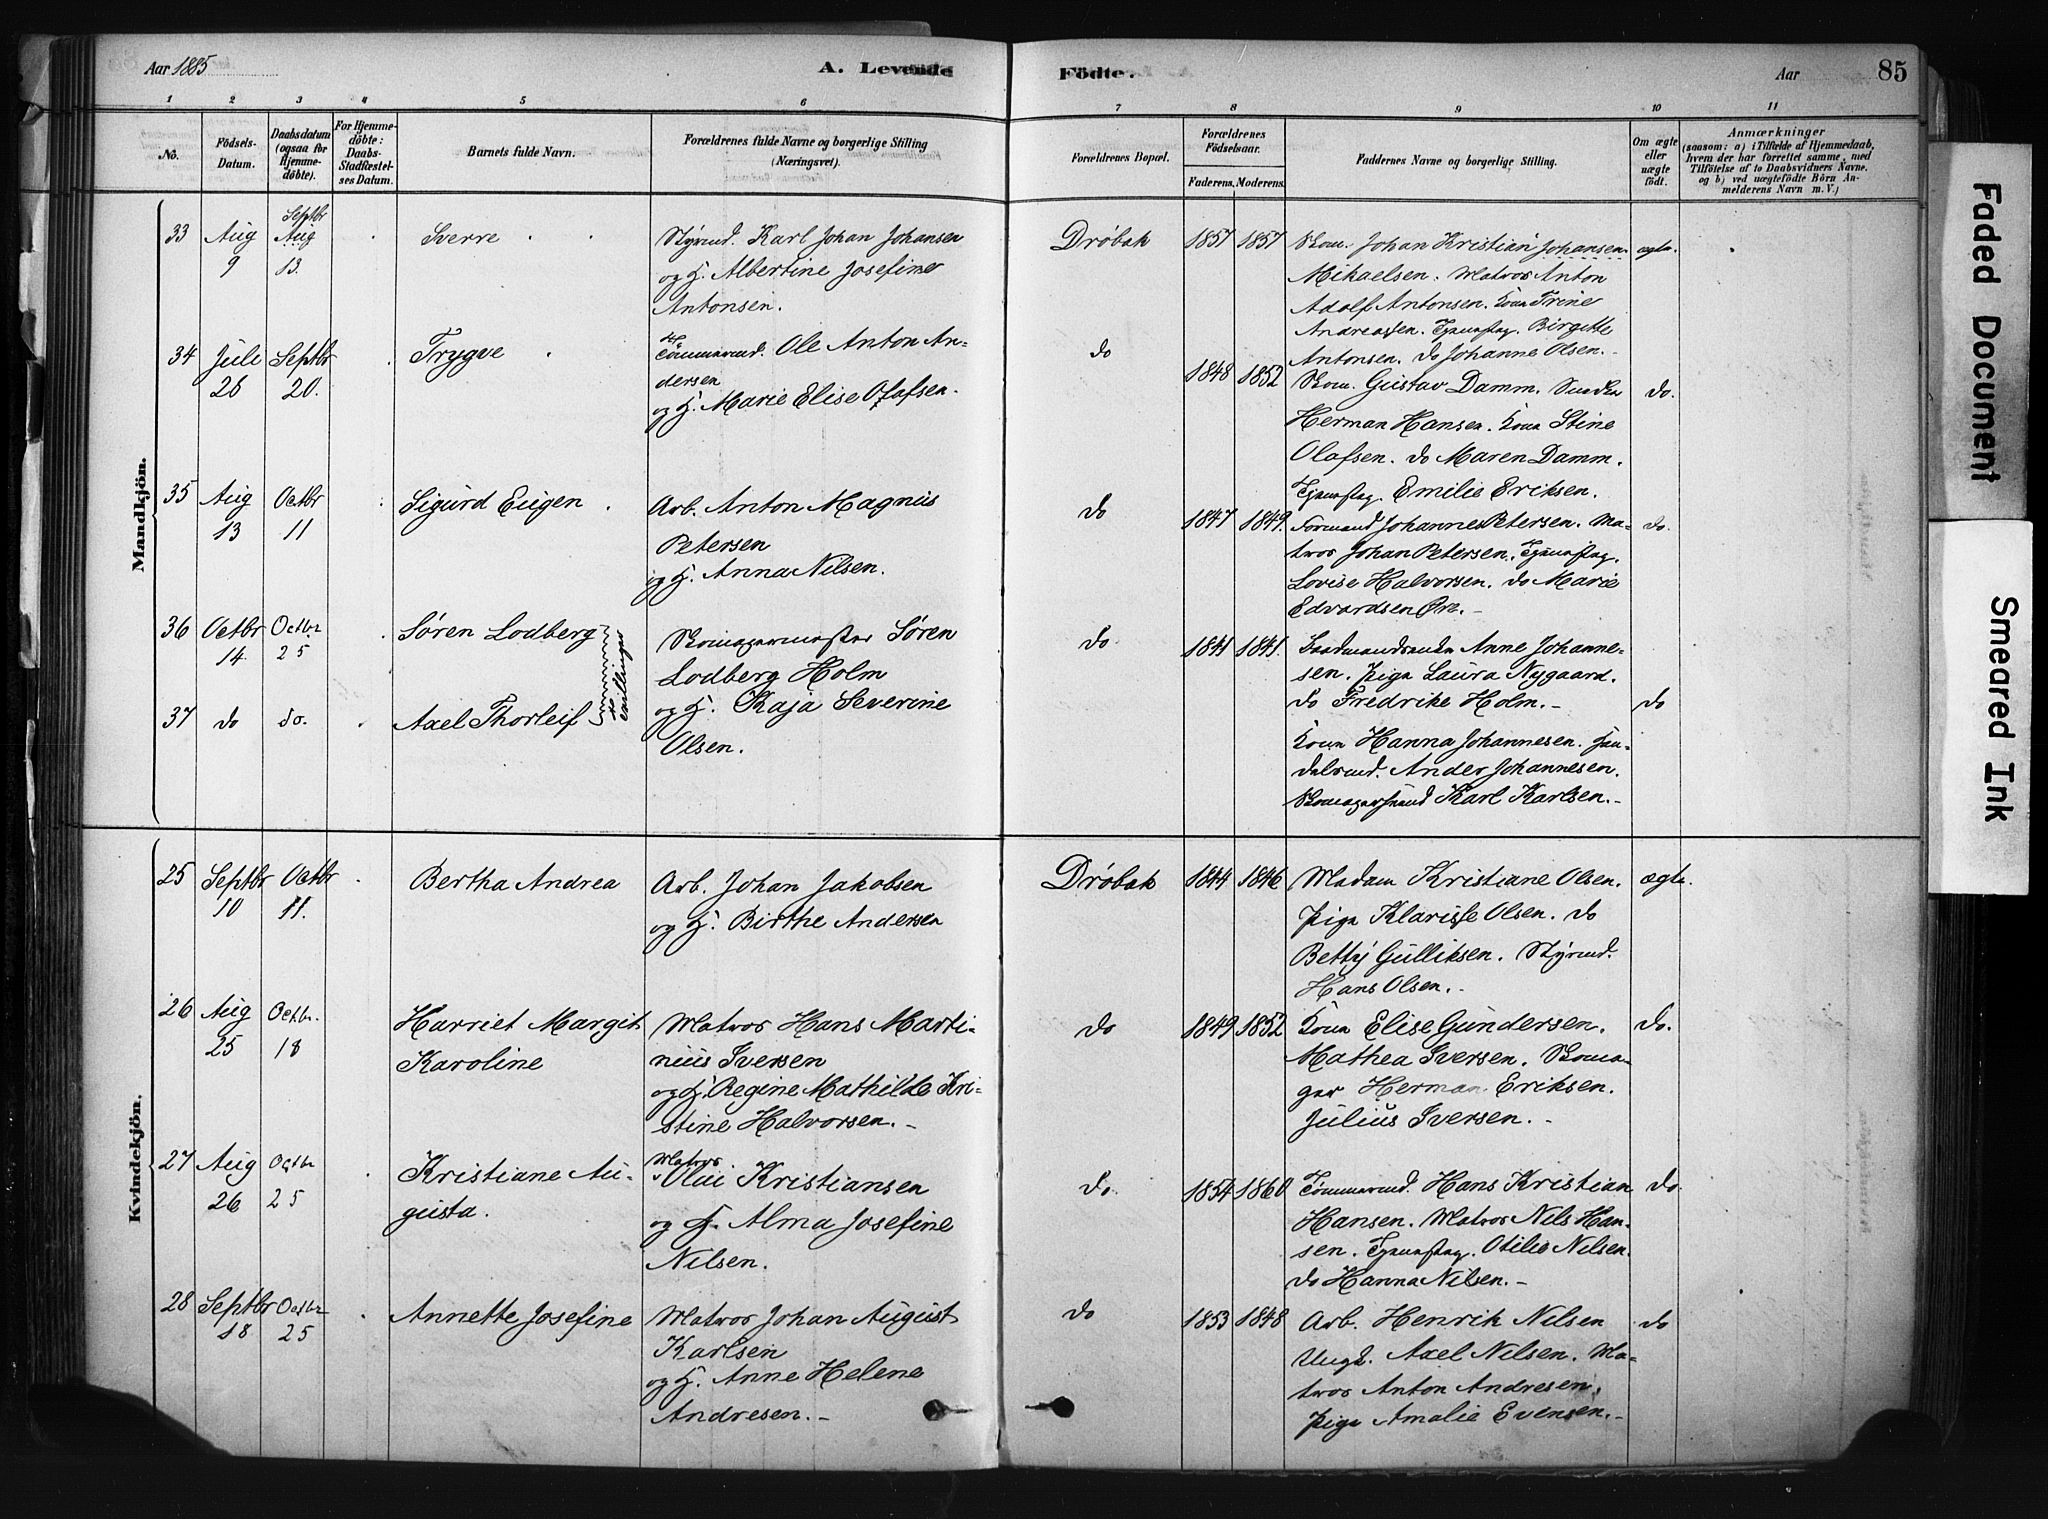 Aar 1885
A. Levende
Födte.
Aar
85
1 2 3 4 5 6 7 8 9 10 11
No.
Födsels-
Datum.
Daabsdatum
(ogsaa for
Hjemme-
döbte).
For Hjemme-
döbte:
Daabs-
Stadfæstel-
ses Datum.
Barnets fulde Navn.
Forældrenes fulde Navne og borgerlige Stilling
(Næringsvei).
Forældrenes Bopæl.
Forældrenes
Födselsaar.
Faderens. Moderens.
Faddernes Navne og borgerlige Stilling.
Om ægte
eller
uægte
födt.
Anmærkninger
(saasom: a) i Tilfælde af Hjemmedaab,
hvem der har forrettet samme, med
Tilföielse af to Daabsvidners Navne,
og b) ved uægtefödte Börn An-
melderens Navn m. V.)
Mandkjön.
33
Aug
9
Septbr
Aug
13.
Sverre
Styrmd. Karl Johan Johansen
og H. Albertine Josefine
Antonsen.
Drøbak
1857 1857
Skom. Johan Kristian Johansen
Mikaelsen. Matros Anton
Adolf Antonsen. Kona Trine
Andreassen. Tjenestpg. Birgitte
Antonsen. do Johanne Olsen.
ægte.
34
Juli
26
Septbr
20.
Trygve
Tømmermd. Ole Anton An-
dersen
og H. Marie Elise Olafsen.
do
1848 1852
Skom. Gustav Damm.
Herman Hansen. Kona Stine
Olafsen. do Maren Damm.
Tjenestpg. Emilie Eriksen.
do.
35
Aug
13
Octbr
11
Sigurd Eugen
Arb. Anton Magnus
Petersen
og H. Anna Nilsen.
do
1847 1849.
Formand Johannes Petersen. Ma-
tros Johan Petersen. Tjenestpg.
Lovise Halvorsen. do Marie
Edvardsen
do.
36
Octbr
14.
Octbr
25
Søren Lodberg
Tvillinger
Skomagermester Søren
Lodberg Holm
og H. Kaja Severine
Olsen.
do.
1841 1841.
Anne Johanne-
sen. Pige Laura Nygaard.
do Fredrike Holm.
Kona Hanna Johannesen. Han-
delsmd. Ander Johannesen.
Skomagersvend Karl Karlsen.
do
37
do
do.
Axel Thorleif
Kvindekjön.
25
Septbr
10
Octbr
11.
Bertha Andrea
Arb. Johan Jakobsen
og H. Birthe Andersen
Drøbak
1844 1846
Madam Kristiane Olsen.
Pige Klarisse Olsen. do
Betty Gulliksen. Styrmd.
Hans Olsen.
ægte.
26
Aug
25
Octbr.
18
Harriet Margit
Karoline
Matros Hans Marti-
nius Iversen
og H. Regine Mathilde Kri-
stine Halvorsen.
do
1849 1852
Kona Elise Gundersen.
Mathea Iversen. Skoma-
ger Herman Eriksen.
Julius Iversen.
do.
27
Aug
26
Octbr
25
Kristiane Au-
gusta.
Matros
Olai Kristiansen
og H. Alma Josefine
Nilsen.
do.
1854 1860
Tømmermd. Hans Kristian
Hansen. Matros Nils Han-
sen. Tjenestpg. Otilie Nilsen.
do Hanna Nilsen.
do.
28
Septbr
18
Octbr
25
Annette Josefine
Matros Johan August
Karlsen
og H. Anne Helene
Andresen.
do
1853 1848
Arb. Henrik Nilsen
Ungk. Axel Nilsen. Ma-
tros Anton Andresen.
Pige Amalie Evensen.
do
Faded Document
Smeared Ink